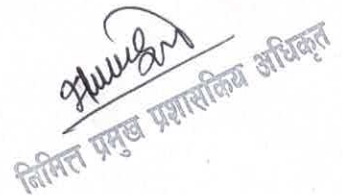 निमित्त प्रमुख प्रशासकिय अधिकृत